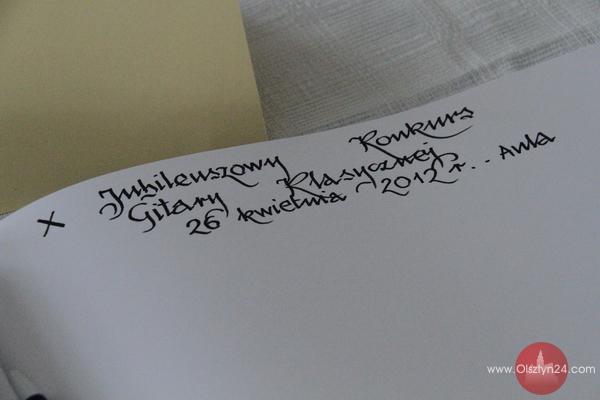 X Jubileuszowy Konkurs
Gitary Klasycznej
26 kwietnia 2012 r. . Aula
www.Olsztyn24.com